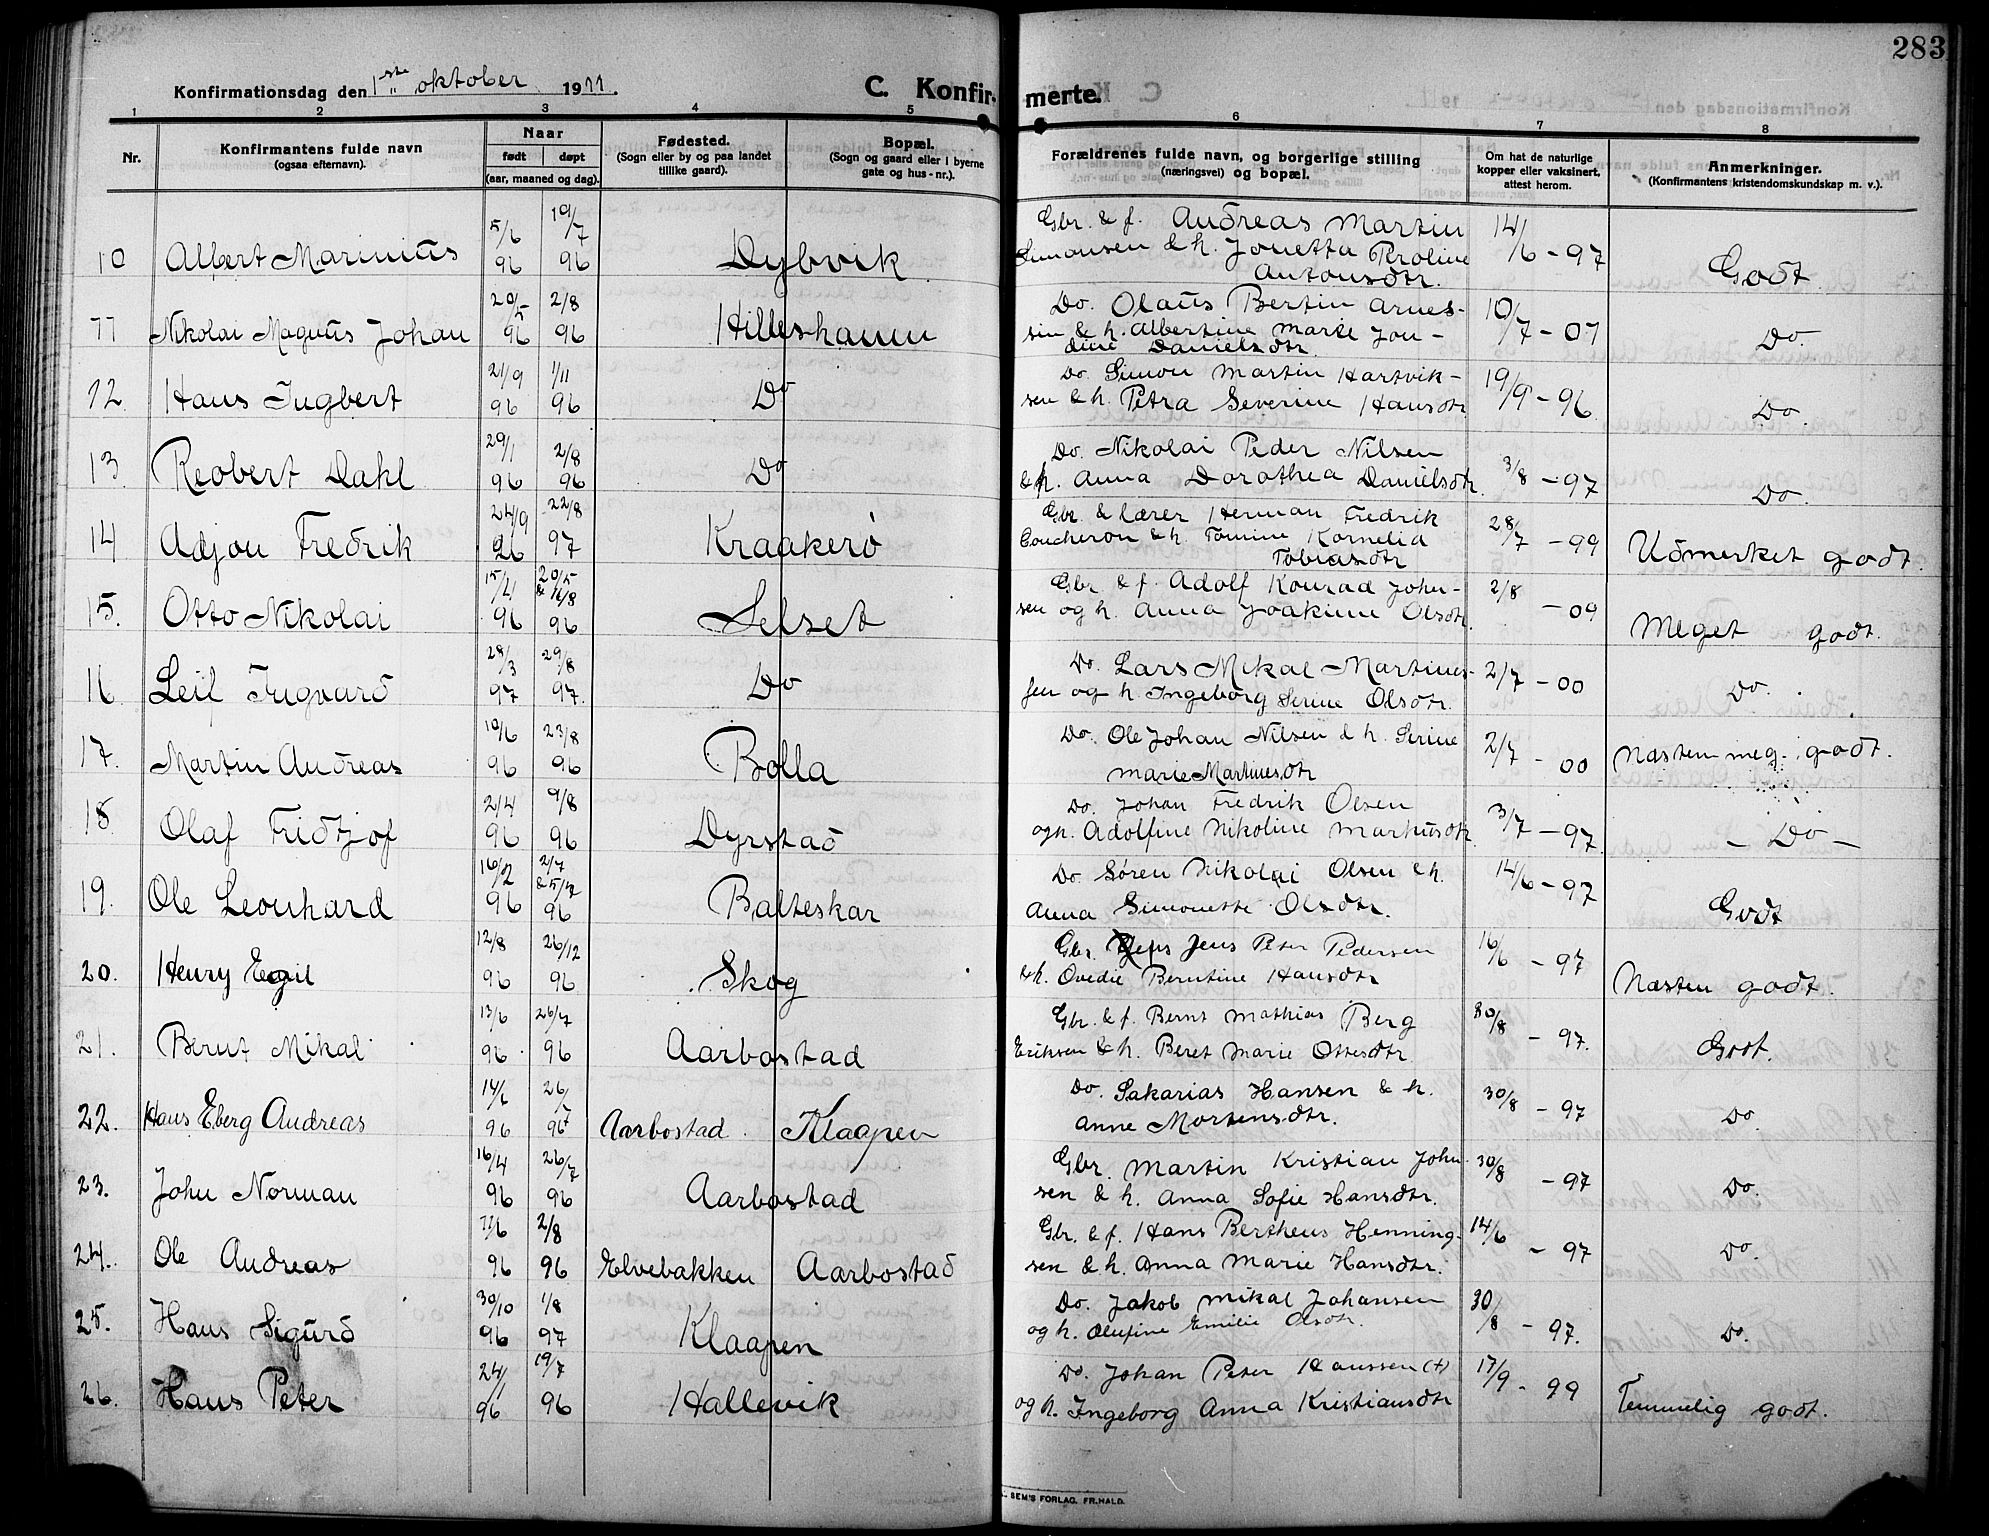 283
Konfirmationsdag den 1ste oktober 1911.
C. Konfirmerte.
1 2 3 4 5 6 7 8
Nr.
Konfirmantens fulde navn
(ogsaa efternavn).
Naar
født døpt
(aar, maaned og dag).
Fødested.
(Sogn eller by og paa landet
tillike gaard).
Bopæl.
(Sogn og gaard eller i byerne
gate og hus-nr.).
Forældrenes fulde navn, og borgerlige stilling
(næringsvei) og bopæl.
Om hat de naturlige
kopper eller vaksinert,
attest herom.
Anmerkninger.
(Konfirmantens kristendomskundskap m. v.).
10 Albert Marinius 5/6 96 19/7 96 Dybvik Gbr. & f. Andreas Martin
Simonsen & h. Jonetta Proline
Antonsdtr. 14/6 - 97 Godt
11 Nikolai Magnus Johan 20/5 96 2/8 96 Hilleshamn Do. Olaus Bertin Arnes-
sen & h. Albertine Marie Jon-
dine Danielsdtr. 10/7 - 07 Do.
12. Hans Ingbert 21/9 96 1/11 96 Do Do. Simon Martin Hartvik-
sen & h. Petra Severine Hansdtr 19/9 - 96 Do.
13 Reobert Dahl 29/1 96 2/8 96 Do Do. Nikolai Peder Nilsen
& h. Anna Dorothea Danielsdtr. 3/8 - 97 Do.
14 Adjon Fredrik 24/9 96 22/8 97 Kraakerø Gbr. & lærer Herman Fredrik
Coucheron & h. Tomine Kornelia
Tobiasdtr 28/7 - 99 Udmerket godt.
15. Otto Nikolai 15/4 96 20/5 & 16/8 96 Selset Gbr & f. Adolf Konrad John-
sen og h. Anna Joakime Olsdtr. 2/8 - 09 Meget godt.
16 Leif Ingvard 28/3 97 29/8 97. Do Do. Lars Mikal Martines-
sen og h. Ingeborg Serine Olsdtr. 2/7 - 00 Do.
17. Martin Andreas 10/6 96 23/8 96 Bolla Do. Ole Johan Nilsen & h. Serine
Marie Martinesdtr 2/7 - 00 Næsten meg. godt.
18. Olaf Fridtjof 2/4 96 9/8 96 Dyrstad Do. Johan Fredrik Olsen
og h. Adolfine Nikoline Markusdtr. 3/7 - 97. - Do -
19. Ole Leonhard 16/2 96 2/7 & 5/7 96 Balteskar Do. Søren Nikolai Olsen & h.
Anna Simonette Olsdtr. 14/6 - 97 Godt
20. Henry Egil 12/8 96 26/12 96 Skog Gbr. Jens Peter Pedersen
& h. Ovedie Berntine Hansdtr 16/6 - 97 Næsten godt.
21. Bernt Mikal 13/6 96 26/7 96 Aarbostad Gbr. & f. Bernt Mathias Berg
Eriksen & h. Beret Marie Ottesdtr. 30/8 - 97. Godt.
22. Hans Eberg Andreas 14/6 96 26/7 96 Aarbostad. Klaapen Do. Sakarias Hansen & h.
Anne Mortensdtr. 30/8 - 97 Do.
23. John Norman 16/4 96 26/7 96 Aarbostad Gbr. Martin Kristian John-
sen & h. Anna Sofie Hansdtr. 30/8 - 97 Do.
24. Ole Andreas 11/6 96 2/8 96 Elvebakken Aarbostad Gbr. & f. Hans Bertheus Henning-
sen & h. Anna Marie Hansdtr. 14/6 - 97 Do.
25. Hans Sigurd 30/10 96 1/8 97 Klaapen Do. Jakob Mikal Johansen
og h. Olufine Emilie Olsdtr. 30/8 - 97. Do.
26. Hans Peter 24/1 96 19/7 96 Hallevik Do. Johan Peter Hanssen (+)
og h. Ingeborg Anna Kristiansdtr 17/9 - 99 Temmelig godt.
SEM'S FORLAG. FR.HALD.